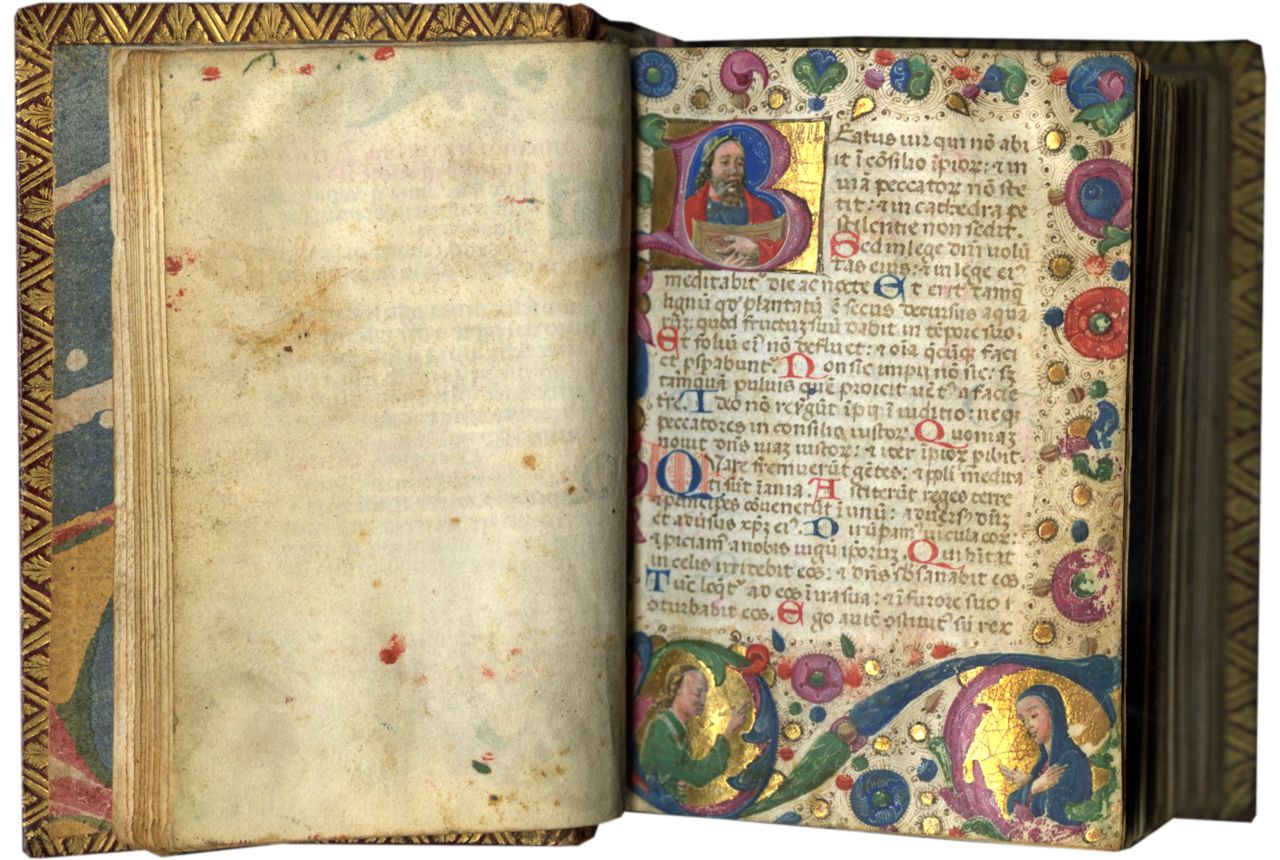 Beatus uir qui nō abi
it ī cōsilio īpioꝝ: ⁊ in
uia peccatoꝝ nō ste
tit: ⁊ in cathedra pe
stilentie non sedit.
Sed in lege dn̄i uolū
tas eius: ⁊ in lege ei᷒
meditabit᷑ die ac nocte Et erit tamq̄
lignū qd̓ plantatū ē secus decursus aqua
ꝝ: quod fructuꝫ suū dabit in tēpore suo.
Et foliū ei᷒ nō defluet: ⁊ oīa q̄cūqꝫ faci
et ꝓsꝑabunt᷑. Non sic impij nō sic: sꝫ
tamquā puluis quē proicit uēt᷒ a facie
tr̄e. Ideo nō resurgūt īpij ī iuditio: neqꝫ
peccatores in consilio iustoꝝ. Quoniaꝫ
nouit dn̄s uiaꝫ iustoꝝ: ⁊ iter īpioꝝ ꝑibit.
Quare fremuerūt gētes: ⁊ ppl̄i medita
ti sūt īania. Astiterūt reges terre
⁊ principes cōuenerūt ī unū: aduers᷒ dn̄ꝫ
et aduīsus xp̄ꝫ ei᷒. Dirūpam᷒ uīcula eoꝝ:
⁊ ꝓiciam᷒ a nobis iugū ipoꝝ. Qui hītat
in celis irridebit eos: ⁊ dn̄s sbsanabit eos
Tūc loqt᷑ ad eos ī ira sua: ⁊ ī furore suo ↄ
oturbabit eos. Ego autē ↄstitut᷒ sū rex